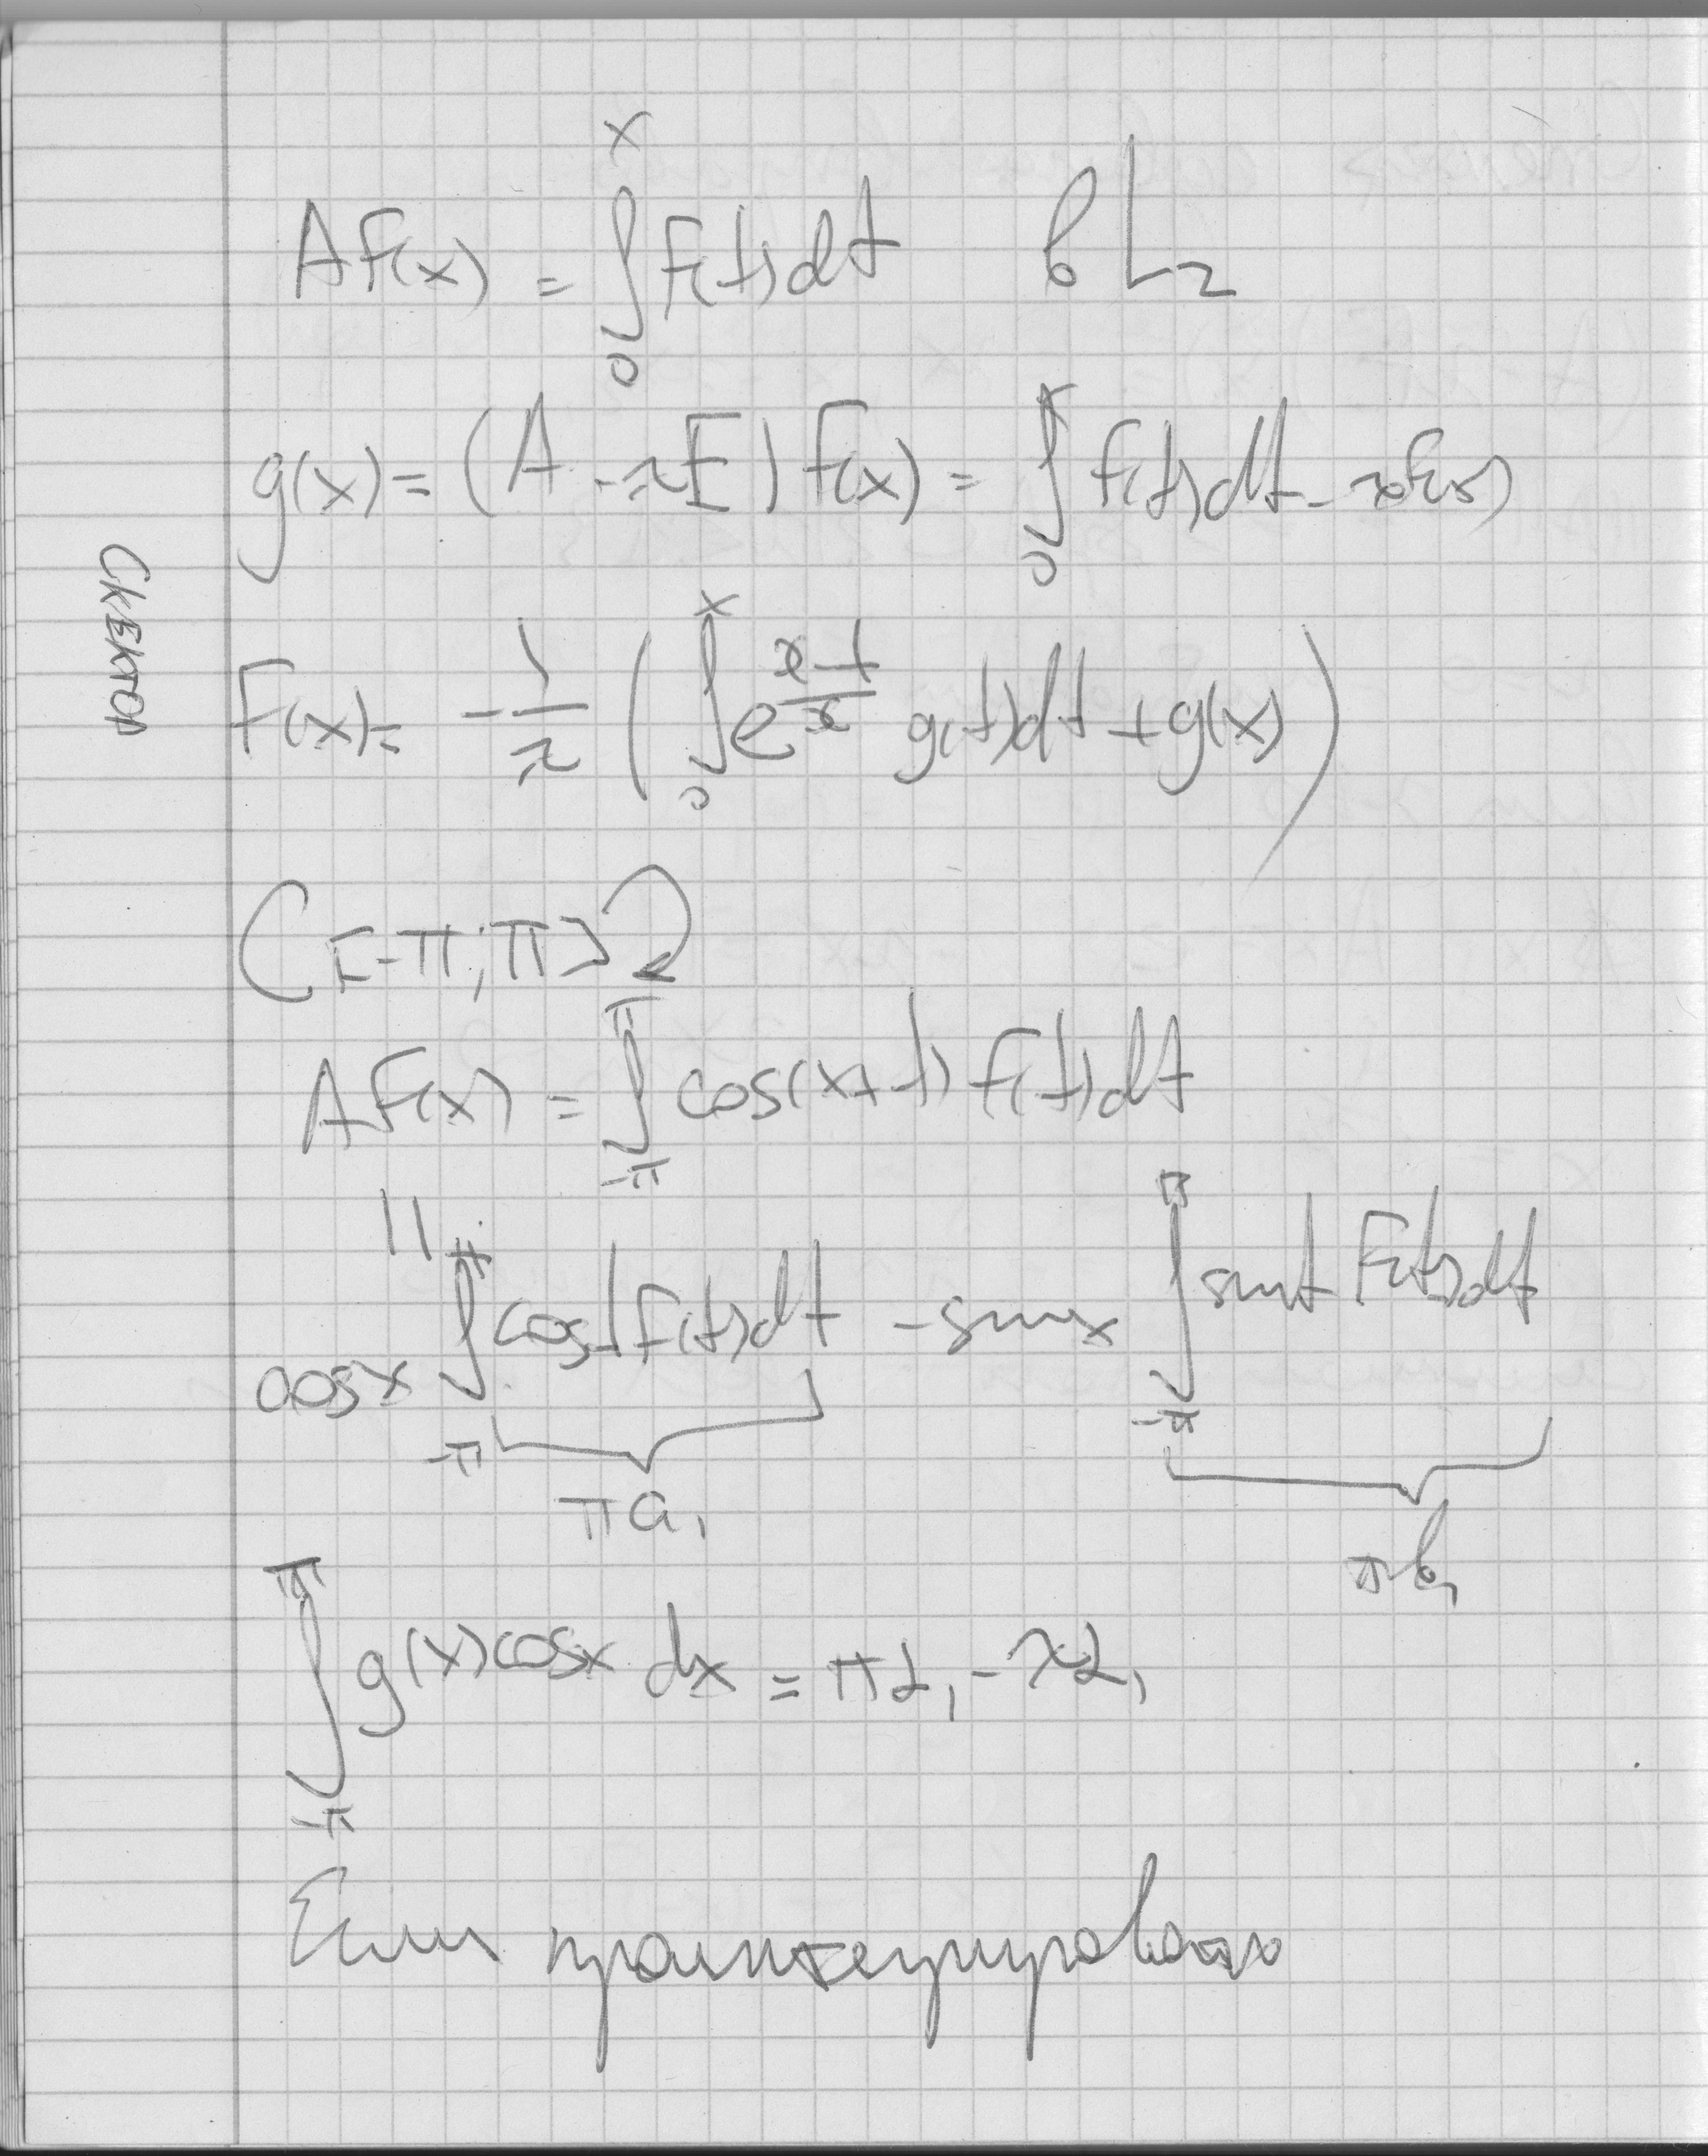 Af(x) = ∫₀ˣ f(t)dt в L₂
g(x) = (A - λE) f(x) = ∫₀ˣ f(t)dt - λf(x)
СКЕКТОР
f(x) = -1/λ (∫₀ˣ e^((x-t)/λ) g(t)dt + g(x))
C[-π;π]
Af(x) = ∫_{-π}^{π} cos(x+t) f(t)dt
||
cosx ∫_{-π}^{π} cost f(t)dt - sinx ∫_{-π}^{π} sint f(t)dt
πa₁ πb₁
∫_{-π}^{π} g(x)cosx dx = πα₁ - λα₁
Если проинтегрировать